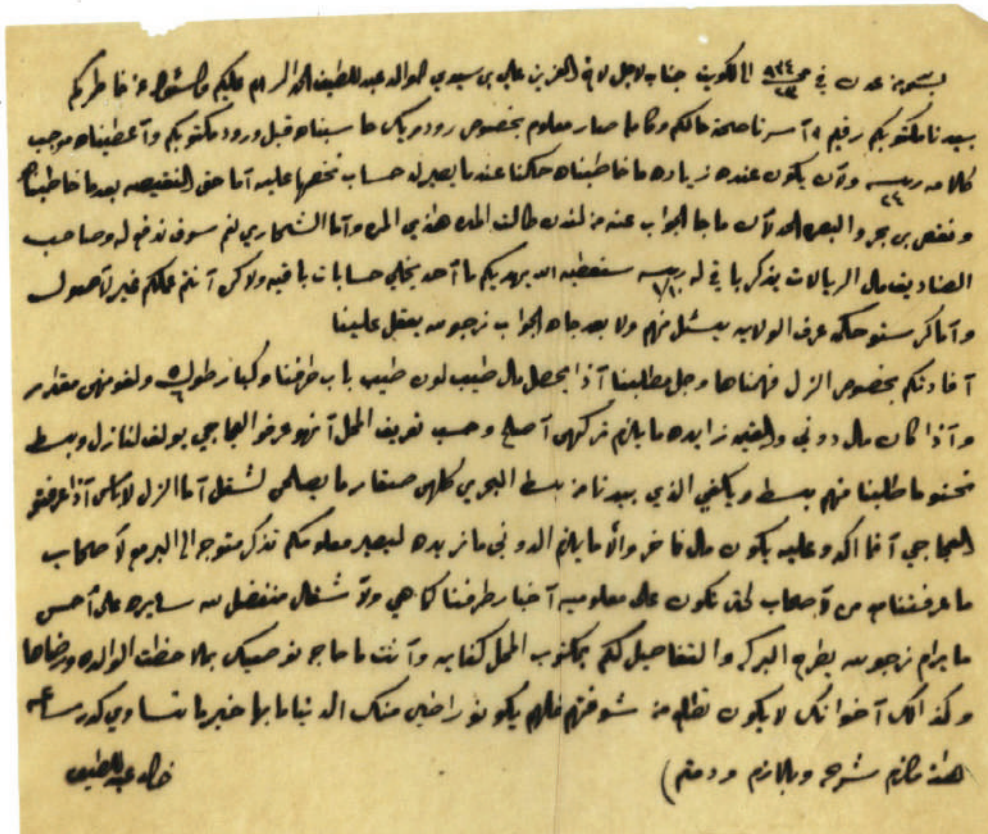 من عدن في ٢٣ ٩٢٤ الى الكويت جناب الاجل الاخ العزيز علي بن سيدي الوالد عبد اللطيف الحمد السلام عليكم والسؤال عن خاطركم
بيدنا مكتوبكم رقيم ١ آسرنا صحة حالكم وكلما صار معلوم بخصوص رودريك حاسبناه قبل ورود مكتوبكم وآعطيناه موجب
كلامه ربية ٢٤ ولآن يكون عنده زياده ما خاطبناه حكنا عند ما يصير له حساب نخصها عليه آما حق النقيصه بعد ما خاطبنا
ونقص بن بحر والبصره الحد لآن ما جا الجواب عنه من لندن طالت المده هذي المره وآما الشحاري نعم سوف ندفع له وصاحب
الصناديق مال الريالات يذكر باقي له ربية ١/١٠ سنعطيه الله يهديكم ما آحد يخلي حسابات باقيه ولاكن آنتم عملكم غير لآصول
وآما كرستوحكه عرف الولايه يسئل منهم ولا بعد جاه الجواب نرجو الله يعقل علينا
آفادتكم بخصوص الزل فهمناها وجل مطلبنا آذا يحصل مال طيب لون طيب باب طرفنا وكبار طول ولفو منهن مقدار
وآذا كان مال دوني والقيمه زايده ما يلزم تركهن آصلح وحسب تعريف المحل آنهو عرفو العجاجي يولف لنا زل وبسط
نحنو ما طلبنا منهم بسط ويكفي الذي بيدنا من بسط البحري كلهن صغار ما يصلحن لشغل آما الزل لاباس آذا عرفتو
العجاجي آفا اكد وعليه يكون مال فاخر والآ ما يلزم الدوني ما نريده ليصير معلومكم تذكر متوجه الى البر مع لآصحاب
ما عرفتنا من لآصحاب لحتى نكون على معلوميه آخبار طرفنا كما هي ولآ شغال من فضل الله سايره على آحسن
ما يرام نرجو الله يطرح البركه والتفاصيل لكم بمكتوب المحل كفايه وآنت ما حاجه نوصيك بملاحظت الوالده ورضاها
وكذالك آخوانك لا يكون تظلم من شوفتهم خلهم يكونو راضين منك الدنيا ما بها خير ما تساوي كدر ساعه
هذا ما لزم شرحه وبالازم ودمتم)
خالد عبد اللطيف